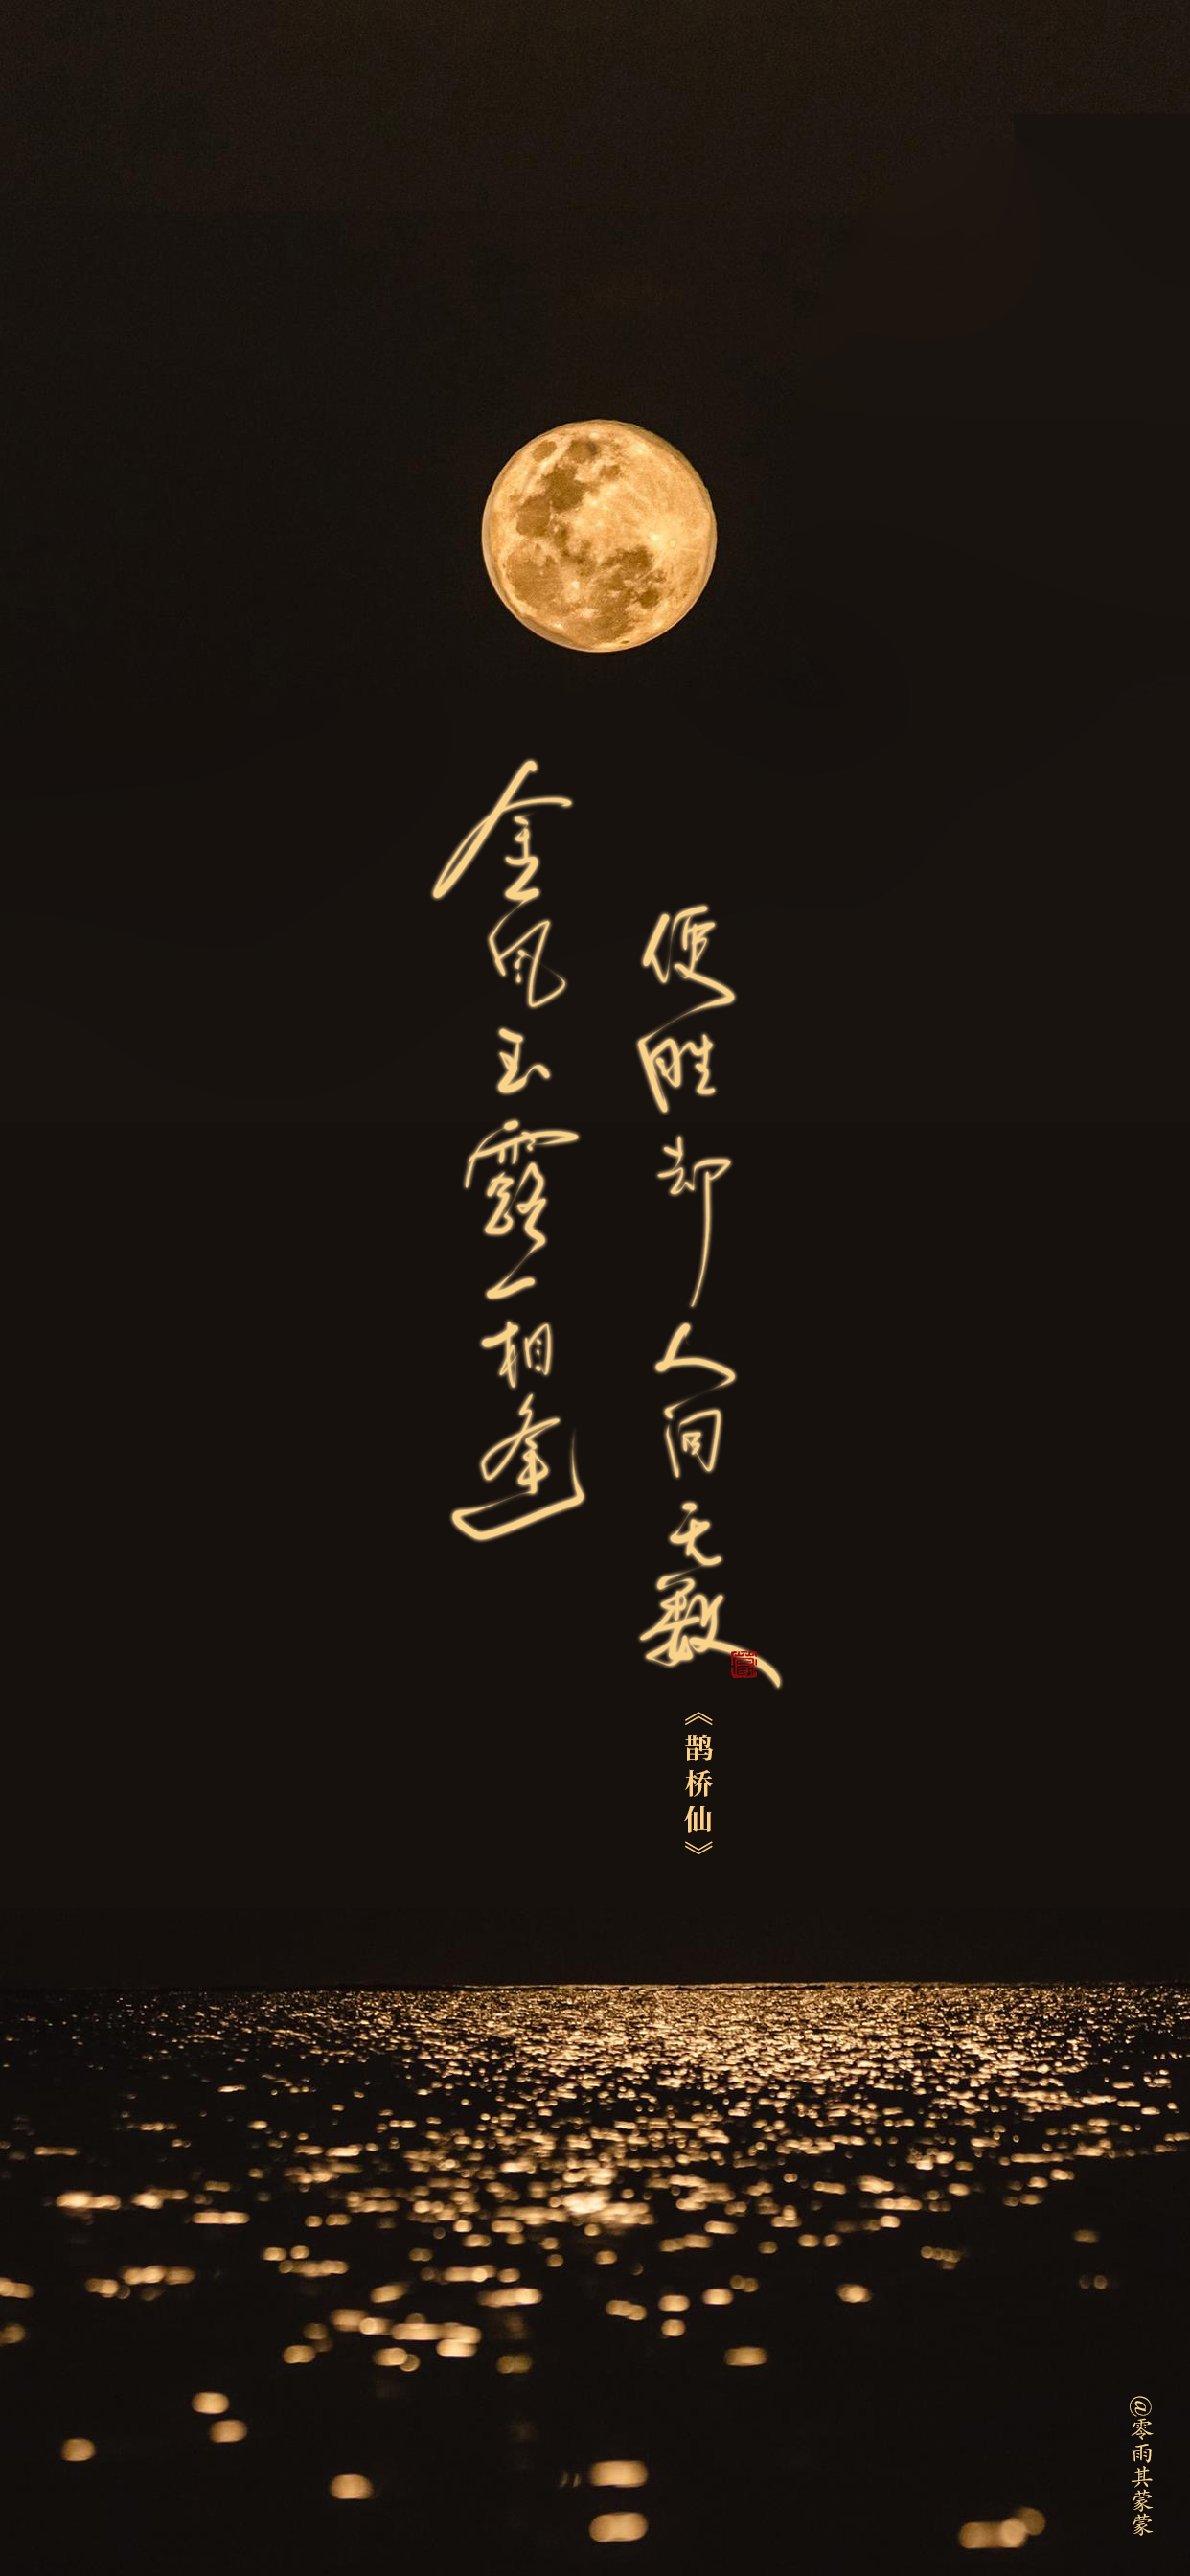 金风玉露一相逢
便胜却人间无数
《鹊桥仙》
@零雨其蒙蒙